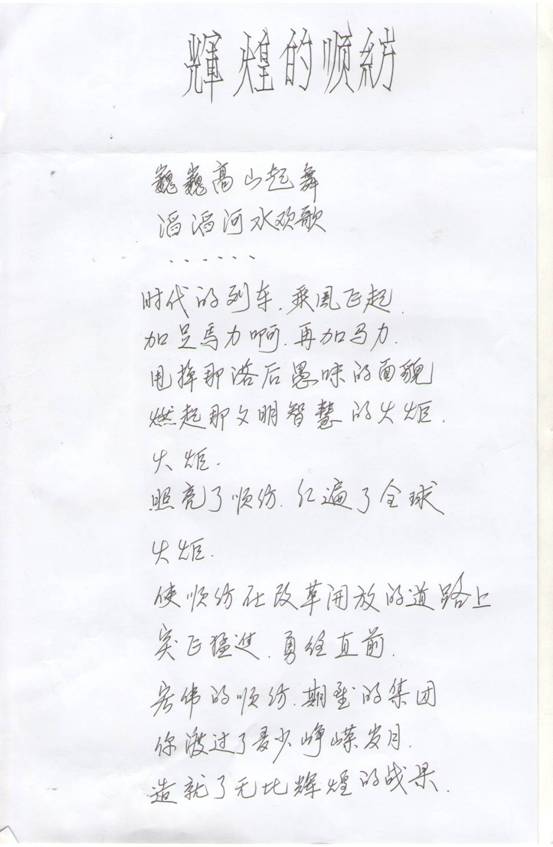 輝煌的顺紡
巍巍高山起舞
滔滔河水欢歌
......
时代的列车.乘风飞起.
加足馬力啊.再加马力.
甩掉那落后愚昧的面貌
燃起那文明智慧的火炬.
火炬.
照亮了顺纺.红遍了全球
火炬.
使顺纺在改革开放的道路上
突飞猛进.勇往直前.
宏伟的顺纺.期望的集团
你渡过了多少峥嵘岁月.
造就了无比辉煌的战果.